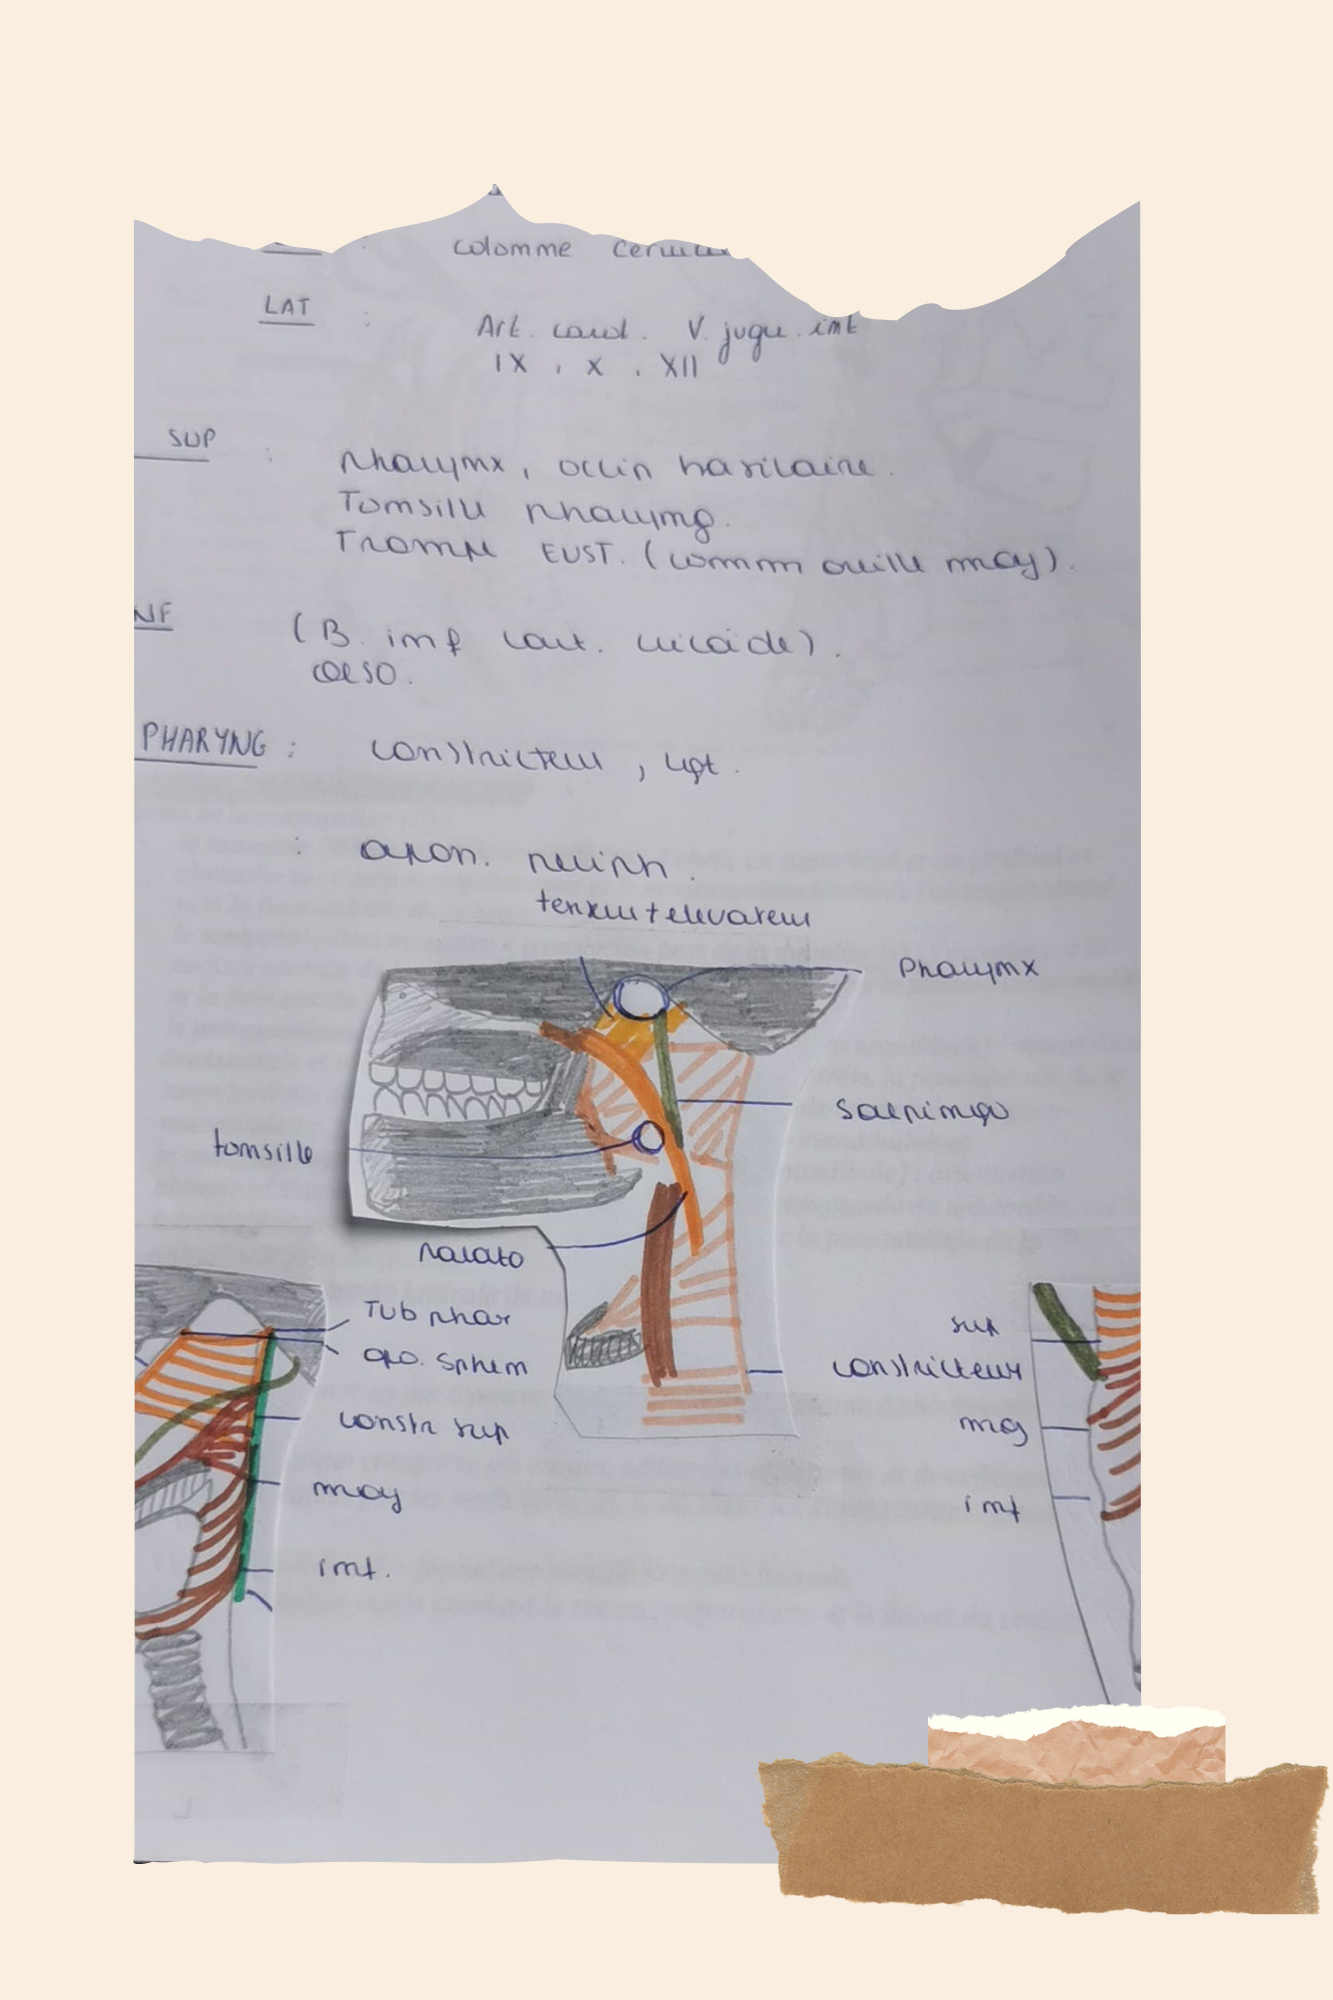 colonne
LAT :
Art. carot. V. jugu. int
IX, X, XII
SUP :
pharynx, occip basilaire.
Tonsille pharyng.
Trompe EUST. (comm oreille moy).
(B. inf cart. cricoïde).
oeso.
PHARYNG : constricteur, lgt.
: apon. périph.
tenseur + elevateur
Pharynx
salpingo
tonsille
palato
Tub phar
apo. sphen
constr sup
moy
inf.
sup
constricteur
mog
inf